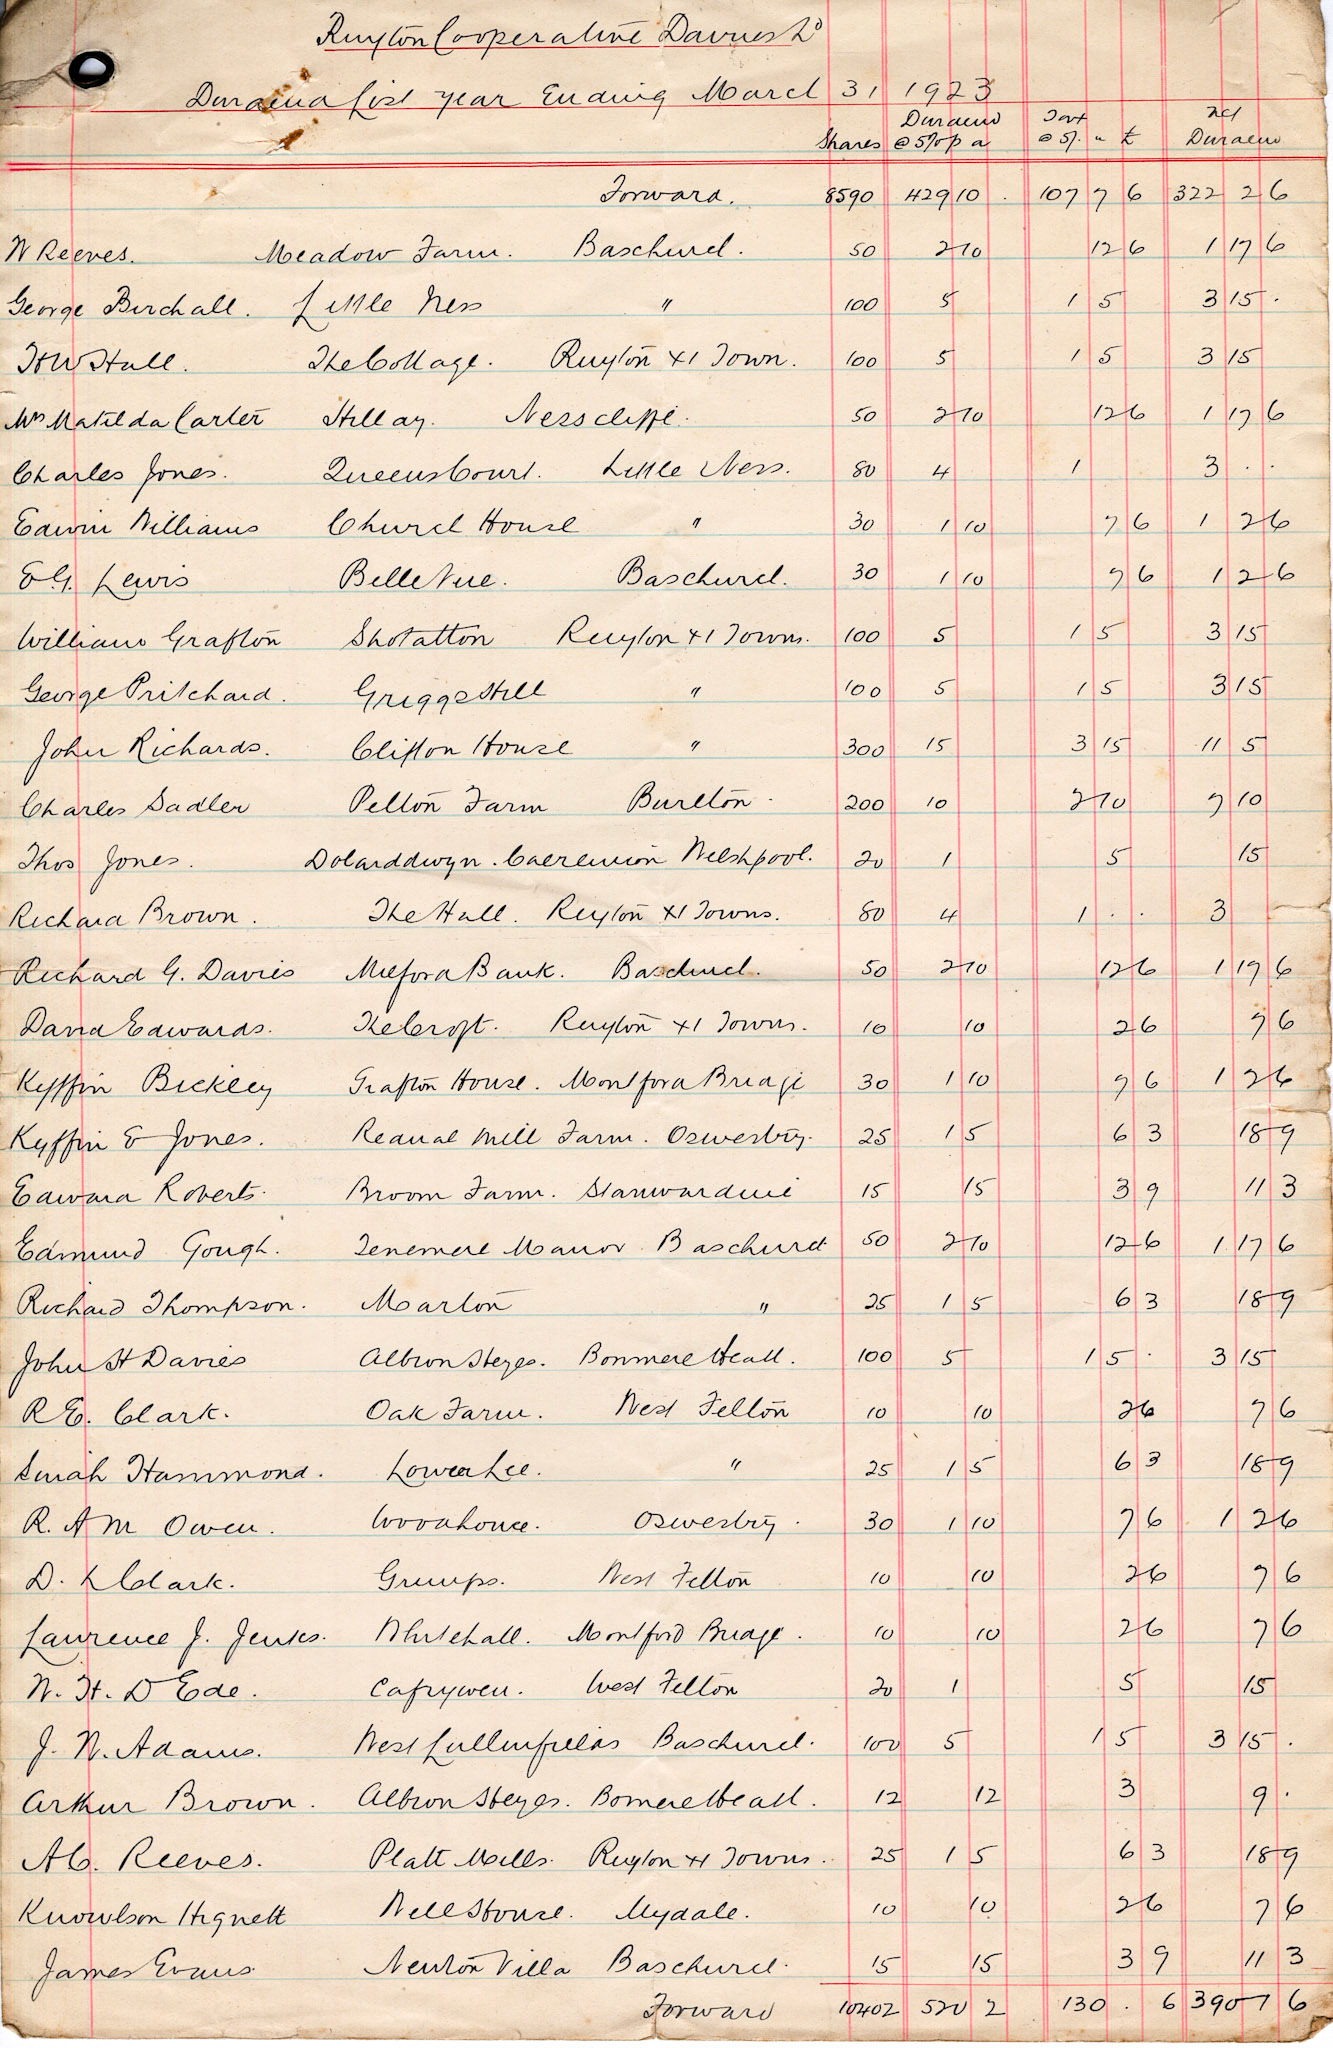 Ruyton Cooperative Dairies Ld
Dividend List year Ending March 31 1923
Shares Dividend @ 5% p a Tax @ 5/- in £ Net Dividend
Forward. 8590 429 10 . 107 7 6 322 2 6
W Reeves. Meadow Farm. Baschurch. 50 2 10 12 6 1 17 6
George Birchall. Little Ness " 100 5 1 5 3 15 .
H W Hall. The Cottage. Ruyton XI Town. 100 5 1 5 3 15
Mrs Matilda Carter Hillay. Nesscliffe. 50 2 10 12 6 1 17 6
Charles Jones. Queens Court. Little Ness. 80 4 1 3 . .
Edwin Williams Church House " 30 1 10 7 6 1 2 6
E G. Lewis Belle Vue. Baschurch. 30 1 10 7 6 1 2 6
William Grafton Shotatton Ruyton XI Towns. 100 5 1 5 3 15
George Pritchard. Griggs Hill " 100 5 1 5 3 15
John Richards. Clifton House " 300 15 3 15 11 5
Charles Sadler Petton Farm Burlton. 200 10 2 10 7 10
Thos Jones. Dolarddwyn. Caereinion Welshpool. 20 1 5 15
Richard Brown. The Hall. Ruyton XI Towns. 80 4 1 . . 3
Richard G. Davies Milford Bank. Baschurch. 50 2 10 12 6 1 17 6
David Edwards. The Croft. Ruyton XI Towns. 10 10 2 6 7 6
Kyffin Bickley Grafton House. Montford Bridge 30 1 10 7 6 1 2 6
Kyffin E Jones. Rednal Mill Farm. Oswestry. 25 1 5 6 3 18 9
Edward Roberts. Broom Farm. Stanwardine 15 15 3 9 11 3
Edmund Gough. Fenemere Manor. Baschurch 50 2 10 12 6 1 17 6
Richard Thompson. Marton " 25 1 5 6 3 18 9
John H Davies Albion Hayes. Bonmere Heath. 100 5 1 5 . 3 15
R E. Clark. Oak Farm. West Felton 10 10 2 6 7 6
Sarah Hammond. Lower Lee. " 25 1 5 6 3 18 9
R. A M Owen. Woodhouse. Oswestry. 30 1 10 7 6 1 2 6
D. L Clark. Grimps. West Felton 10 10 2 6 7 6
Laurence J. Jenks. Whitehall. Montford Bridge. 10 10 2 6 7 6
W. H. D Ede. West Felton 20 1 5 15
J. W. Adams. West Lullingfields Baschurch. 100 5 1 5 3 15 .
Arthur Brown. Albion Hayes. Bomere Heath. 12 12 3 9 .
A C. Reeves. Platt Mills. Ruyton XI Towns. 25 1 5 6 3 18 9
Knowlson Hignett Wells House. Myddle. 10 10 2 6 7 6
James Evans Newton Villa Baschurch. 15 15 3 9 11 3
Forward 10402 520 2 130 . 6 390 1 6